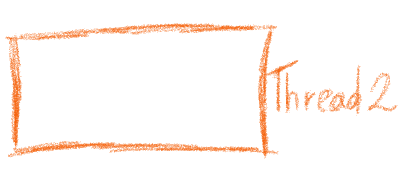 Thread 2